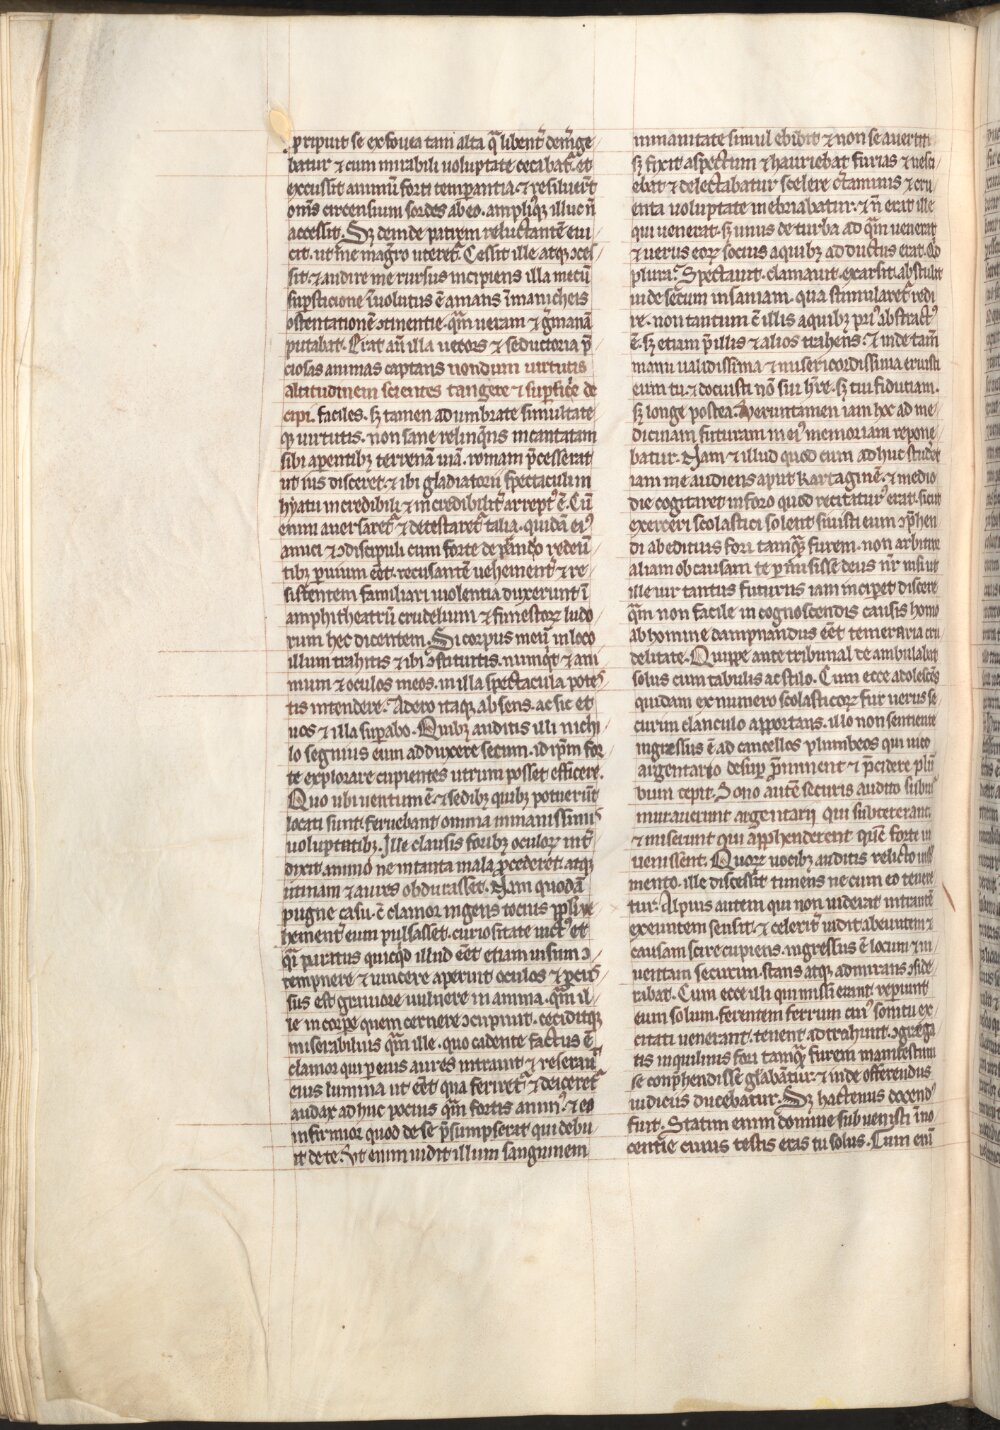 pripuit se ex fouea tam alta q̄ libent̉ dem̉ge
batur ⁊ cum mirabili uoluptate cecabat̉. et
excussit animū forti temperantia. ⁊ resiluer̄t
om̄s circensium sordes ab eo. ampliusq; illuc ñ
accessit. Sꝫ deinde patrem reluctantē eui
cit. ut me mag̉ro uteret̉. Cessit ille atq; ↄces
sit. ⁊ audire me rursus incipiens illa mecū
sup̄sticione īuolutus ē amans ī manicheis
ostentationē ↄtinentie. q̄m ueram ⁊ g̉manā
putabat. Erat au̅ illa uecors ⁊ seductoria p̄
ciosas animas captans nondum uirtutis
altitudinem scientes tangere ⁊ sup̄ficie de
cipi. faciles. sꝫ tamen adumbrate simultate
q; uirtutis. non sane relinq̄ns incantatam
sibi aparentibꝫ terrenā uiā. romam p̄cesserat
ut ius disceret. ⁊ ibi gladiatorii spectaculi in
hyatu incredibili ⁊ incredibilit̉ arrept⁹ ē. Cū
enim auersaret̉ ⁊ detestaret̉ talia. quidā ei⁹
amici ⁊ ↄdiscipuli cum forte de prandio redeū
tibꝫ puium eēt. recusantē uehement̉ ⁊ re
sistentem familiari uiolentia duxerunt ī
amphitheatrū crudelium ⁊ funestoꝝ ludo
rum hec dicentem. Si corpus meū in loco
illum trahitis ⁊ ibi ↄstituitis. nunquid ⁊ ani
mum ⁊ oculos meos. in illa spectacula pote
tis intendere. Adero itaq; absens. ac sic et
uos ⁊ illa sup̄abo. Quibꝫ auditis illi nichi
lo segnius eum adduxere secum. id ip̄m for
te explorare cupientes utrum posset efficere.
Quo ubi uentum ē ⁊ sedibꝫ quibꝫ potuerūt
locati sunt. feruebant omnia inmanissimis
uoluptatibꝫ. Ille clausis foribꝫ oculoꝝ int̉
dixit animo ne in tanta mala p̄cederet. atq;
utinam ⁊ aures obdurasset. Nam quodā
pugne casu. c̄ clamor ingens tocius pp̄li ue
hement̉ eum pulsasset. curiositate uict⁹ et
q̄i paratus quicq̄d illud eēt etiam uisum ↄ
tempnere ⁊ uincere aperuit oculos ⁊ p̄cus
sus est grauiore uulnere in anima. q̄m il
le in corpe quem cernere ↄcupiuit. ceciditq;
miserabilius q̄m ille. quo cadente factus ē
clamor qui p eius aures intrauit ⁊ reserau̅
eius lumina ut eēt qua feriret̉ ⁊ deiceret̉
audax adhuc pocius q̄m fortis anim⁹. ⁊ eo
infirmior quod de se p̄sumpserat qui debu
it de te. Vt enim uidit illum sanguinem
inmanitate simul ebibit ⁊ non se auertit
sꝫ fixit aspectum ⁊ hauriebat furias ⁊ nesci
ebat ⁊ delectabatur scelere c̉taminis ⁊ cru
enta uoluptate inebriabatur. ⁊ ñ erat ille
qui uenerat. sꝫ unus de turba ad q̄m uenerat
⁊ uerus eoꝝ socius a quibꝫ adductus erat. Qͥd
plura? Spectauit. clamauit. exarsit. abstulit
inde secum insaniam. qua stimularet̉ redi
re. non tantum c̄ illis a quibꝫ pri⁹ abstract⁹
ē. sꝫ etiam p̄ illis ⁊ alios trahens. ⁊ inde tam̄
manu ualidissima ⁊ misericordissima eruisti
eum tu. ⁊ docuisti nō sui hr̄e. sꝫ tui fiduciam.
sꝫ longe postea. Veruntamen iam hoc ad me
dicinam futuram in ei⁹ memoriam repone
batur. Nam ⁊ illud quod cum adhuc studet
iam me audiens aput kartaginē. ⁊ medio
die cogitaret in foro quod recitatur⁹ erat. sicut
exerceri scolastici solent siuisti eum ↄp̄hen
di ab edituis fori tamq̄ furem. non arbitror
aliam ob causam te p̄misisse deus nr̄ nisi ut
ille uir tantus futurus iam inciperet discere
q̄m non facile in cognoscendis causis homo
ab homine dampnandus eēt temeraria cru
delitate. Quippe ante tribunal deambulabat
solus cum tabulis ac stilo. Cum ecce adolescēs
quidam ex numero scolasticoꝝ fur uerus se
curim clanculo apportans. illo non sentiente
ingressus ē ad cancellos plumbeos qui uico
argentario desup p̄minent ⁊ p̄cidere plū
bum cepit. Sono autē securis audito submur
murauerunt argentarij qui subter erant.
⁊ miserunt qui app̄henderent quē forte in
uenissent. Quoꝝ uocibꝫ auditis relicto instru
mento. ille discessit timens ne cum eo tenere
tur. Alpius autem qui non uiderat intrantē
exeuntem sensit. ⁊ celerit̉ uidit abeuntem ⁊
causam scire cupiens. ingressus ē locum ⁊ in
uentam securim. stans atq; admirans ↄside
rabat. Cum ecce illi qui missi erant repiunt
eum solum. ferentem ferrum cui⁹ sonitu ex
citati uenerant. tenent adtrahunt. ↄgrega
tis inquilinis fori tamq̄ furem manifestum
se conp̄hendisse gl̄abantur. ⁊ inde offerendus
iudiciis ducebatur. Sꝫ hactenus docend⁹
fuit. Statim enim domine subuenisti īno
centie cuius testis eras tu solus. Cum eni̅